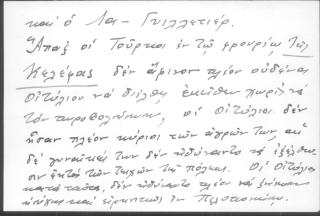 καὶ ὁ Λα- Γκιλλετιέρ.
Ἅπαξ οἱ Τοῦρκοι ἐν τῷ φρουρίῳ τῆς
Κελέφας δὲν ἄφινον πλέον οὐδένα
Οἰτύλιον νὰ διέλθῃ ἐκεῖθεν χωρὶς νὰ
τὸν πυροβολήσουν, οἱ Οἰτύλιοι δὲν
ἦσαν πλέον κύριοι τῶν ἀγρῶν των, αἱ
δὲ γυναῖκές των δὲν ἠδύναντο νὰ ἐξέλθω-
σιν ἐκτὸς τῶν τειχῶν τῆς πόλεως. Οἱ Οἰτύλιοι
κατὰ ταῦτα, δὲν ἠδύναντο πλέον νὰ ζήσωσιν
καὶ εἰρηνικοὶ ἐν Πελοποννήσῳ.